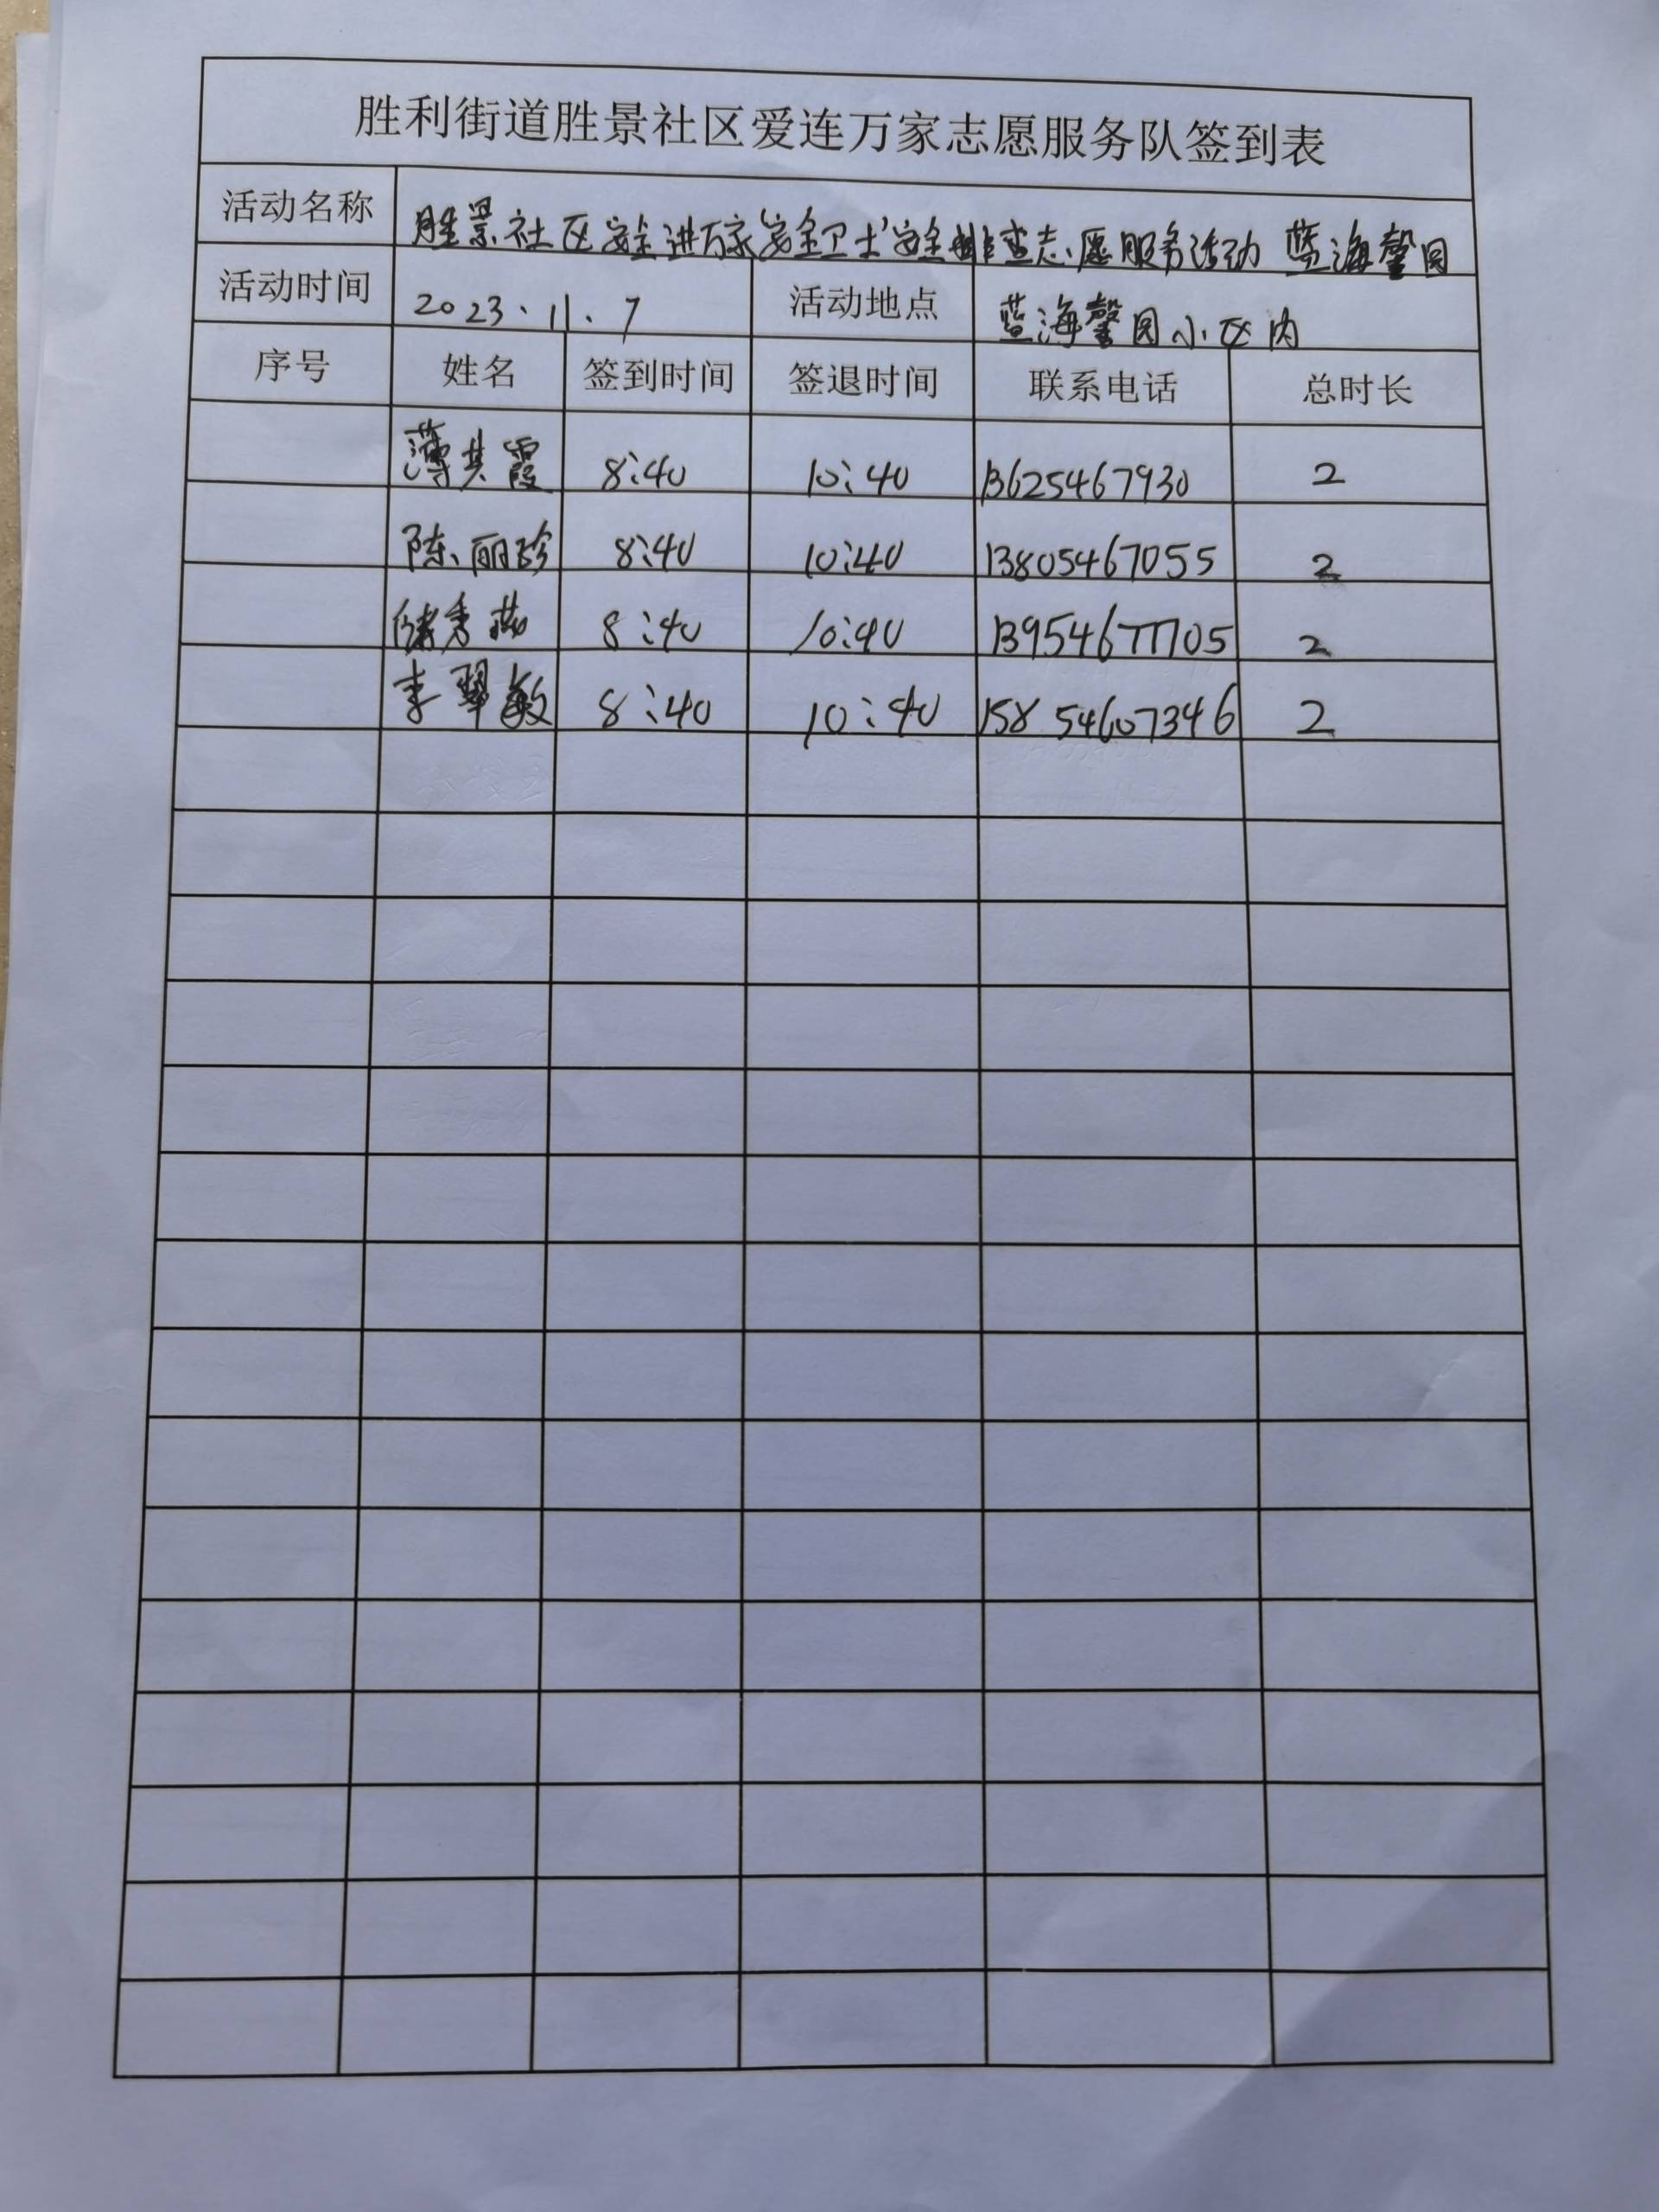 胜利街道胜景社区爱连万家志愿服务队签到表
活动名称 胜景社区安全进万家“安全卫士”安全排查志愿服务活动 蓝海馨园
活动时间 2023.11.7 活动地点 蓝海馨园小区内
序号 姓名 签到时间 签退时间 联系电话 总时长
薄其霞 8:40 10:40 13625467930 2
陈丽珍 8:40 10:40 13805467055 2
秀燕 8:40 10:40 13954677705 2
李翠敏 8:40 10:40 15854607346 2